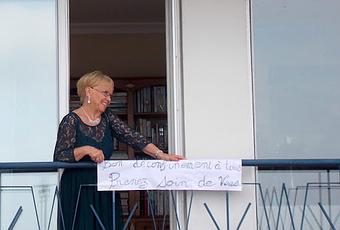 Bon déconfinement à tous
Prenez Soin de Vous